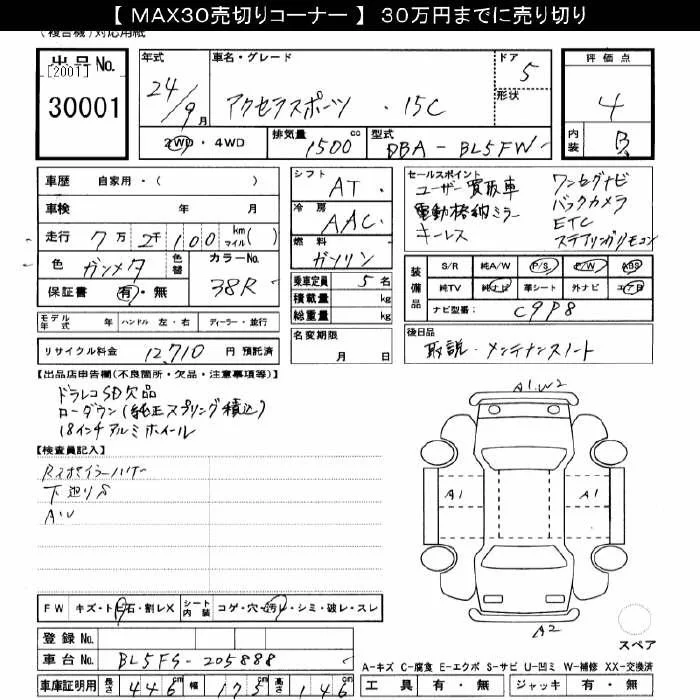 【 MAX30売切りコーナー 】 30万円までに売り切り
(複合機)対応用紙
出品No. [2001] 30001
年式 24/9月
車名・グレード アクセラスポーツ ・ 15C
ドア 5
形状
評価点 4
内装 B
2WD ・ 4WD 排気量 1500 cc 型式 DBA - BL5FW
車歴 自家用・( )
車検 年 月
走行 7万 2千 100 km マイル( )
色 ガンメタ 色替 カラーNo. 38R
保証書 有・無
モデル年式 年 ハンドル 左・右 ディーラー・並行
リサイクル料金 12,710 円 預託済
シフト AT
冷房 AAC
燃料 ガソリン
乗車定員 5 名
積載量 kg
総重量 kg
名変期限 月 日
セールスポイント
ユーザー買取車 ワンセグナビ
電動格納ミラー バックカメラ
キーレス ETC
ステアリングリモコン
装備品 S/R 純A/W P/S P/W ABS
純TV 純ナビ 革シート 外ナビ エアB
ナビ型番 C9P8
後日品
取説・メンテナンスノート
【出品店申告欄(不良箇所・欠品・注意事項等)】
ドラレコSD欠品
ローダウン(純正スプリング積込)
18インチアルミホイール
【検査員記入】
下廻りS
FW キズ・トビ石・割レX シート内装 コゲ・穴・汚レ・シミ・破レ・スレ
登録No.
車台No. BL5FS-205888
車庫証明用 長さ 446 cm 幅 175 cm 高さ 146 cm
A1.W2
A1 A1
A2
スペア
A-キズ C-腐食 E-エクボ S-サビ U-凹ミ W-補修 XX-交換済
工具 有・無 ジャッキ 有・無